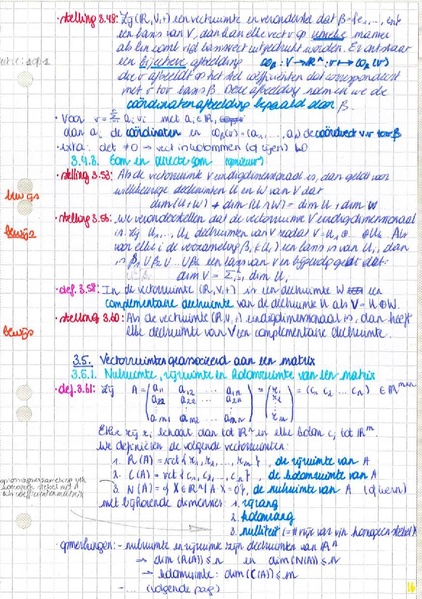 • stelling 3.48: Zij (ℝ, V, +) een vectorruimte en veronderstel dat β = {e₁, ..., eₙ}
een basis van V, dan kan elke vector v op unieke manier
als lin. comb. v/d basisvect. uitgedrukt worden. Er ontstaat
een bijectieve afbeelding co_β: V → ℝⁿ: v ↦ co_β(v)
die v afbeeldt op het stel coëfficiënten dat correspondeert
met v tov basis β. Deze afbeelding noemen we de
coördinatenafbeelding bepaald door β.
• Voor v = Σ aᵢvᵢ met aᵢ ∈ ℝ,
dan aᵢ de coördinaten en co_β(v) = (a₁, ..., aₙ) de coördinaatv. v. v tov β
• extra: det ≠ 0 → vect. in volkomen (of eigen)
3.4.3. Som en directe som
• stelling 3.53: Als de vectorruimte V eindigdimensionaal is, dan geldt voor
willekeurige deelruimten U en W van V dat
dim(U+W) + dim(U∩W) = dim U + dim W
bewijs
• stelling 3.56: we veronderstellen dat de vectorruimte V eindigdimensionaal
is. Zij U₁, ..., Uₖ deelruimten van V zodat V = U₁ ⊕ ... ⊕ Uₖ. Als
voor elke i de verzameling βᵢ ⊂ Uᵢ een basis is van Uᵢ, dan
is β₁ ∪ β₂ ∪ ... ∪ βₖ een basis van V en bijgevolg geldt dat:
dim V = Σ dim Uᵢ
bewijs
• def. 3.58: In de vectorruimte (ℝ, V, +) is een deelruimte W een
complementaire deelruimte van de deelruimte U als V = U ⊕ W.
• stelling 3.60: Als de vectorruimte (ℝ, V, +) eindigdimensionaal is, dan heeft
elke deelruimte van V een complementaire deelruimte.
bewijs
3.5. Vectorruimten geassocieerd aan een matrix
3.5.1. Nulruimte, rijruimte en kolomruimte van een matrix
• def. 3.61: Zij A = [a₁₁ a₁₂ ... a₁ₙ; a₂₁ a₂₂ ... a₂ₙ; ... aₘ₁ aₘ₂ ... aₘₙ] = [r₁; r₂; ... rₘ] = (c₁ c₂ ... cₙ) ∈ ℝᵐˣⁿ
Elke rij rᵢ behoort dan tot ℝⁿ en elke kolom cⱼ tot ℝᵐ.
We definiëren de volgende vectorruimten:
1. R(A) = vct{r₁, r₂, ..., rₘ}, de rijruimte van A
2. C(A) = vct{c₁, c₂, ..., cₙ}, de kolomruimte van A
3. N(A) = {X ∈ ℝⁿ | AX = 0}, de nulruimte van A (of kern)
met bijhorende dimensies: 1. rijrang
2. kolomrang
3. nulliteit
opmerkingen: - nulruimte en rijruimte zijn deelruimten van ℝⁿ
→ dim(R(A)) ≤ n en dim(N(A)) ≤ n
→ kolomruimte: dim(C(A)) ≤ m
- ... (volgende pag)
16